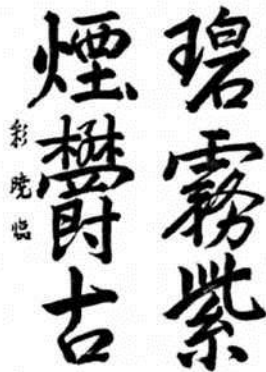 碧霧紫
煙鬱古
彩暁臨